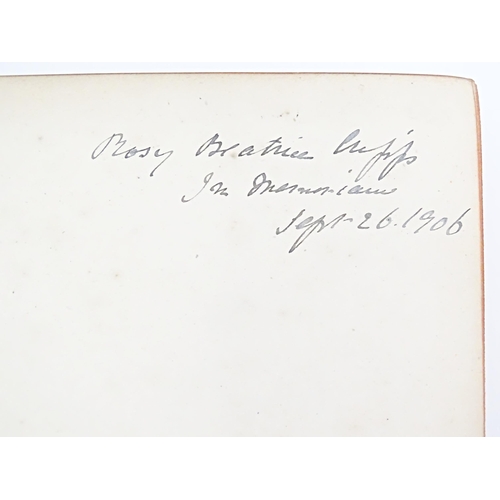 Rosy Beatrice Cripps
In Memoriam
Sept 26. 1906